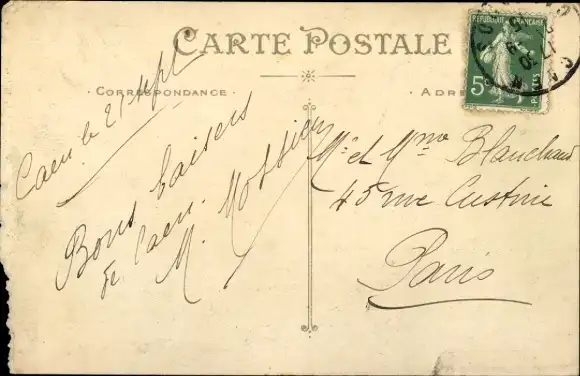 CARTE POSTALE
CORRESPONDANCE
ADRE
REPUBLIQUE FRANÇAISE
5c
POSTES
Caen le 21 sept
Bons baisers
de Caen.
M.
Mr et Mme Blanchard
45 rue Custine
Paris